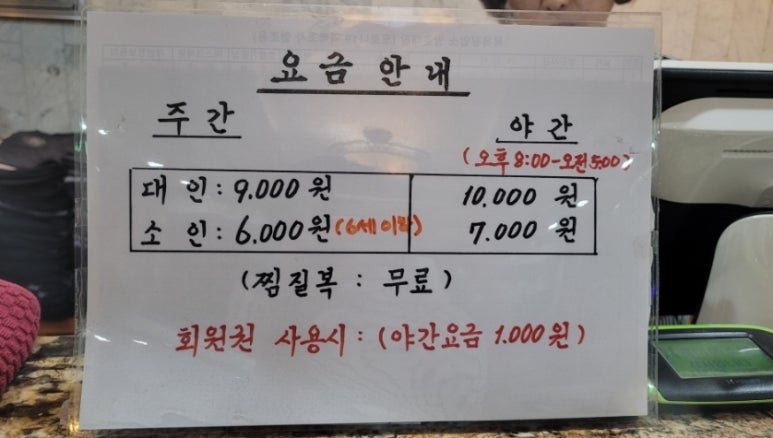 요금 안내
주간 야간
(오후 8:00-오전 5:00)
대 인 : 9.000 원 10.000 원
소 인 : 6.000원 (6세이하) 7.000 원
(찜질복 : 무료)
회원권 사용시 : (야간요금 1.000원)